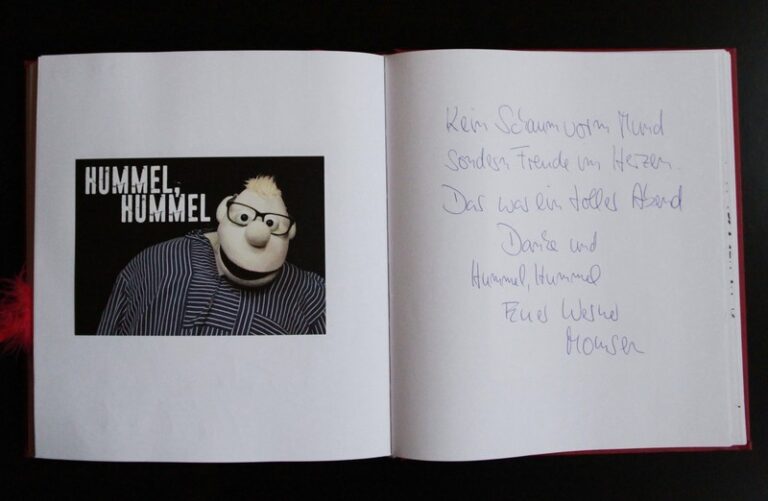 HUMMEL,
HUMMEL
Kein Schaum vorm Mund
sondern Freude im Herzen.
Das war ein tolles Abend
Danke und
Hummel, Hummel
Euer Werner
Momsen